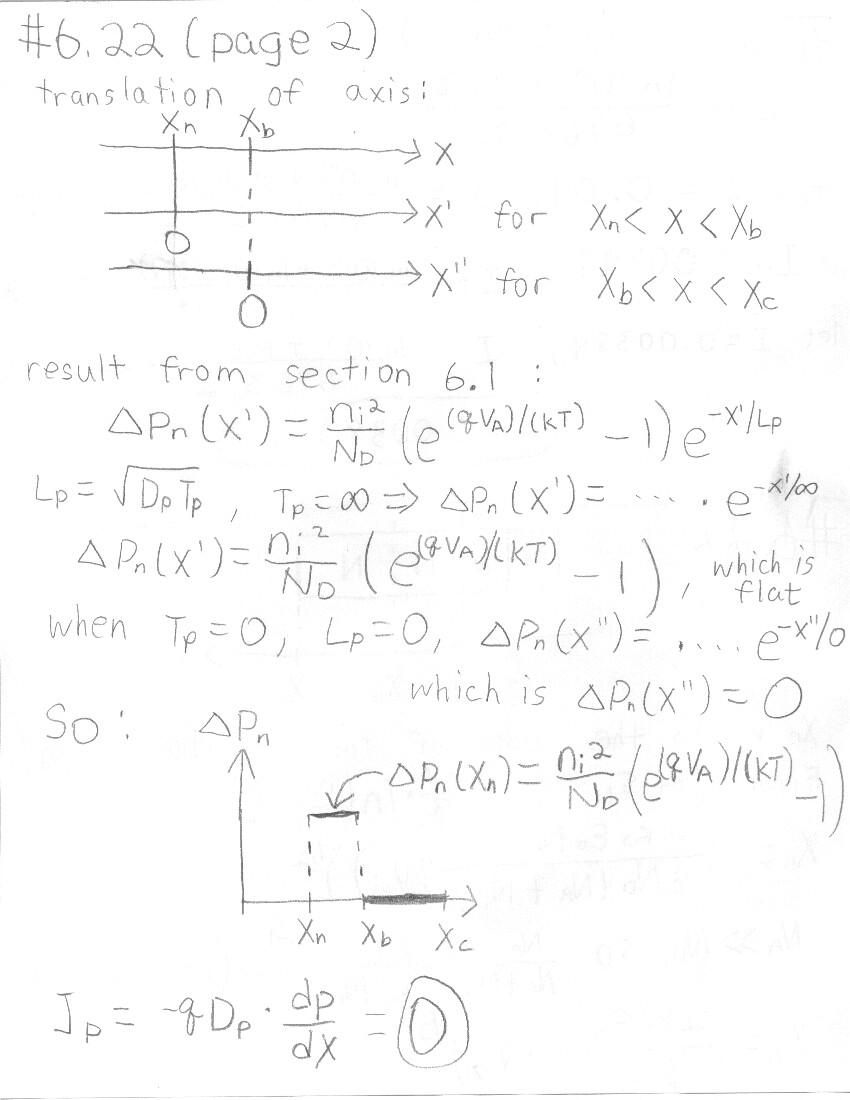 #6.22 (page 2)
translation of axis:
Xn Xb
X
X' for Xn < X < Xb
0
X'' for Xb < X < Xc
0
result from section 6.1 :
ΔPn(X') = ni²/ND (e^(qVA)/(kT) - 1) e^-X'/Lp
Lp = √(Dp Tp) , Tp = ∞ ⇒ ΔPn(X') = .... · e^-X'/∞
ΔPn(X') = ni²/ND (e^(qVA)/(kT) - 1) , which is flat
when Tp = 0, Lp = 0, ΔPn(X'') = ..... e^-X''/0
which is ΔPn(X'') = 0
So : ΔPn
ΔPn(Xn) = ni²/ND (e^(qVA)/(kT) - 1)
Xn Xb Xc
Jp = -qDp · dp/dx = 0